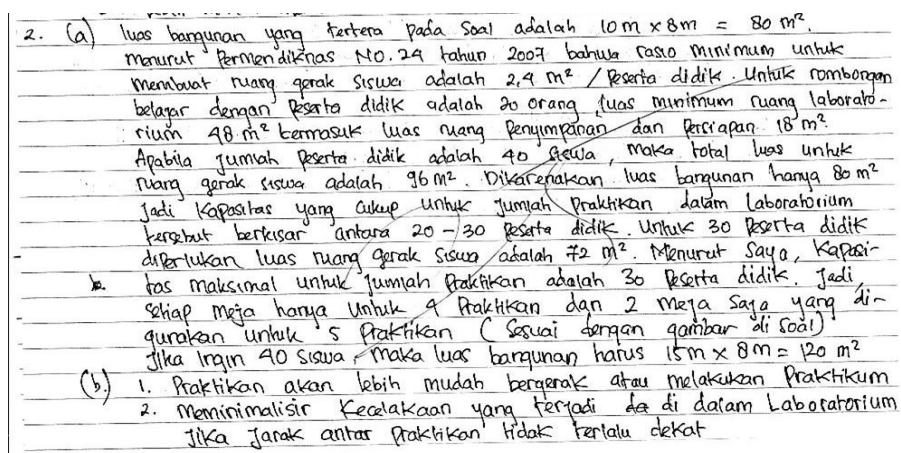 2. (a) luas bangunan yang tertera pada soal adalah 10 m x 8 m = 80 m².
menurut Permendiknas NO. 24 tahun 2007 bahwa rasio minimum untuk
membuat ruang gerak siswa adalah 2,4 m² / Peserta didik. Untuk rombongan
belajar dengan Peserta didik adalah 20 orang, luas minimum ruang laborato-
rium 48 m² termasuk luas ruang Penyimpanan dan Persiapan 18 m².
Apabila Jumlah Peserta didik adalah 40 siswa, maka total luas untuk
ruang gerak siswa adalah 96 m². Dikarenakan luas bangunan hanya 80 m²
Jadi Kapasitas yang cukup untuk Jumlah Praktikan dalam Laboratorium
tersebut berkisar antara 20 - 30 Peserta didik. Untuk 30 Peserta didik
diperlukan luas ruang gerak siswa adalah 72 m². Menurut Saya, Kapasi-
tas maksimal untuk Jumlah Praktikan adalah 30 Peserta didik. Jadi,
setiap meja hanya Untuk 4 Praktikan dan 2 meja Saja yang di-
gunakan untuk 5 Praktikan (Sesuai dengan gambar di soal)
Jika ingin 40 siswa, maka luas bangunan harus 15 m x 8 m = 120 m²
(b.) 1. Praktikan akan lebih mudah bergerak atau melakukan Praktikum
2. Meminimalisir Kecelakaan yang terjadi di dalam Laboratorium
Jika Jarak antar Praktikan tidak terlalu dekat